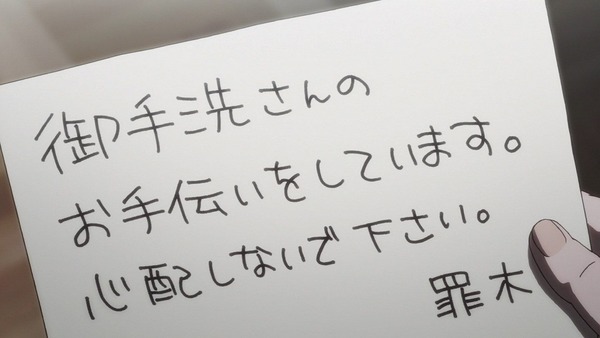 御手洗さんの
お手伝いをしています。
心配しないで下さい。
罪木